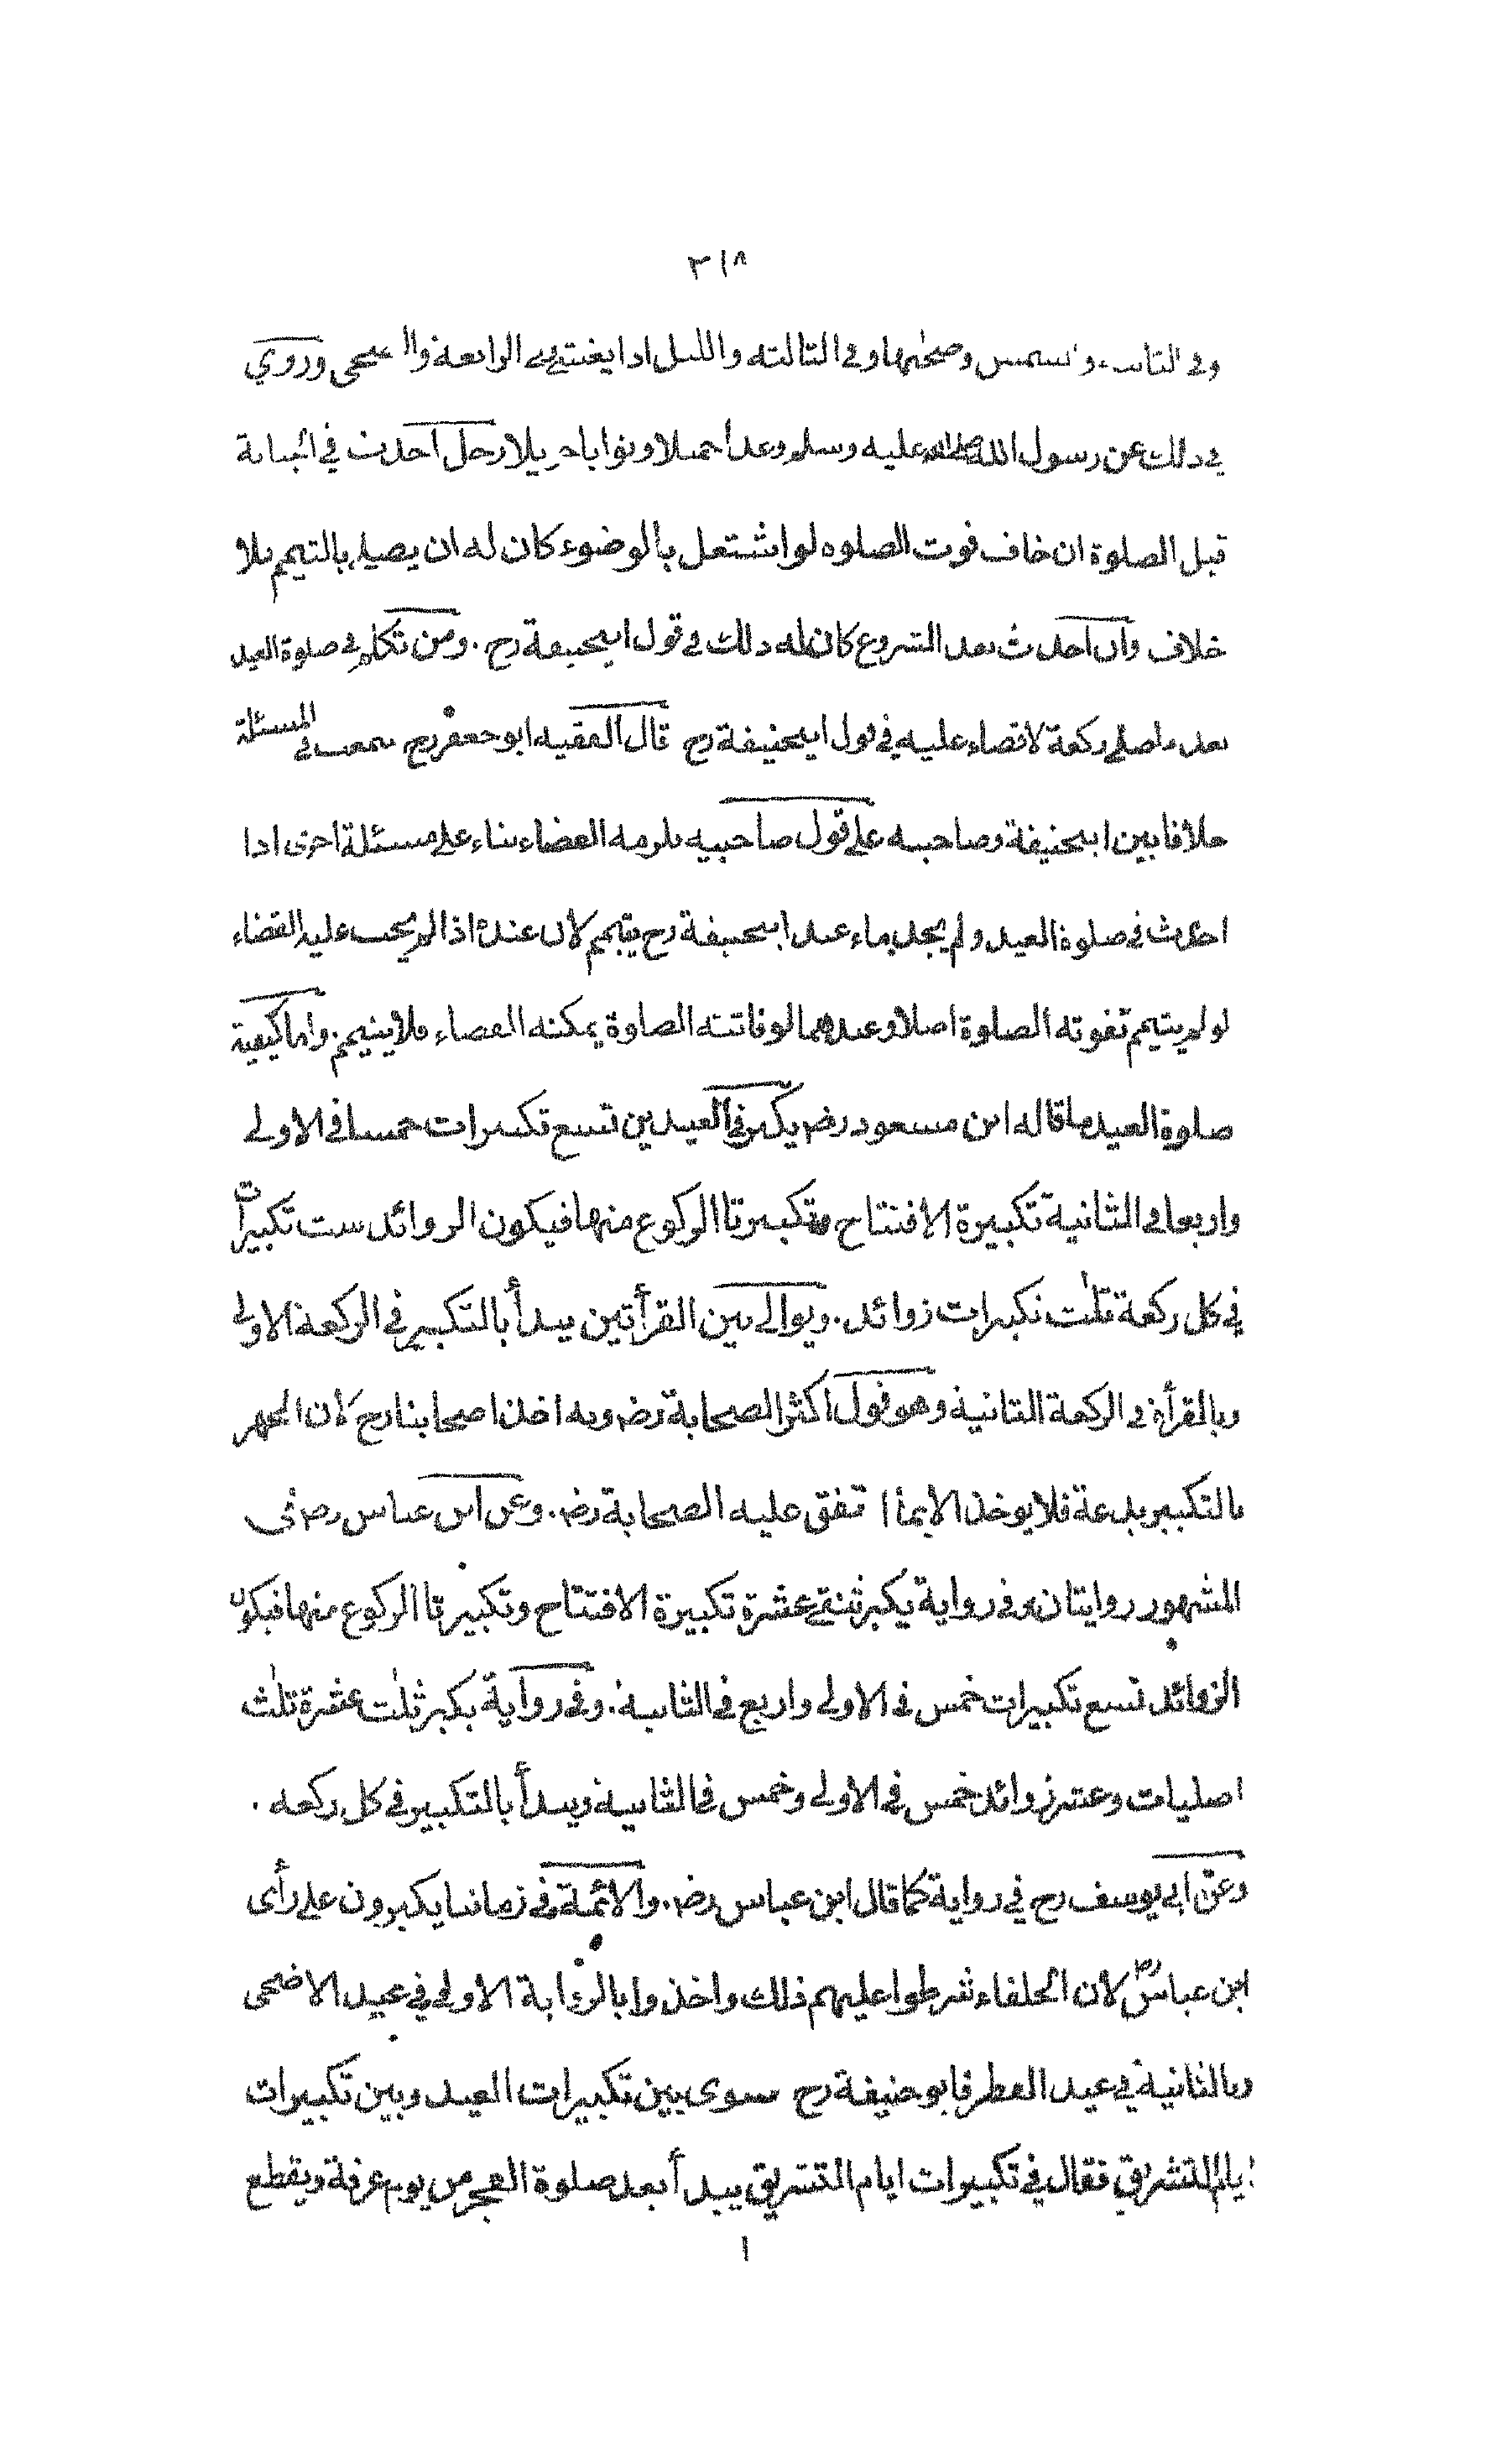 ٣١٨
وفي الثانية والشمس وضحيها وفي الثالثة والليل اذا يغشى وفي الرابعة والضحى وروي
في ذلك عن رسول الله صلى الله عليه وسلم وعدا جميلا وثوابا جزيلا رجل احدث في الجبانة
قبل الصلوة ان خاف فوت الصلوة لو اشتغل بالوضوء كان له ان يصلي بالتيمم بلا
خلاف وان احدث بعد الشروع كان له ذلك في قول ابيحنيفة رح . ومن تكلم في صلوة العيد
بعد ما صلى ركعة لا قضاء عليه في قول ابيحنيفة رح قال الفقيه ابو جعفر رح سمعت في المسئلة
خلافا بين ابيحنيفة وصاحبيه على قول صاحبيه يلزمه القضاء بناء على مسئلة اخرى اذا
احدث في صلوة العيد ولم يجد ماء عند ابيحنيفة رح يتيمم لان عنده اذا لم يجب عليه القضاء
لو لم يتيمم تفوته الصلوة اصلا وعندهما لو فاتته الصلوة يمكنه القضاء فلا يتيمم . واما كيفية
صلوة العيد ما قاله ابن مسعود رض يكبر في العيدين تسع تكبيرات خمسا في الاولى
واربعا في الثانية تكبيرة الافتتاح وتكبيرتا الركوع منها فيكون الزوائد ست تكبيرات
في كل ركعة ثلث تكبيرات زوائد . ويوالي بين القرأتين يبدأ بالتكبير في الركعة الاولى
وبالقرأة في الركعة الثانية وهو قول اكثر الصحابة رض وبه اخذ اصحابنا رح لان الجهر
بالتكبير بدعة فلا يوخذ الا بما اتفق عليه الصحابة رض . وعن ابن عباس رض في
المشهور روايتان وفي رواية يكبر ثنتي عشرة تكبيرة الافتتاح وتكبيرتا الركوع منها فيكون
الزوائد تسع تكبيرات خمس في الاولى واربع في الثانية . وفي رواية يكبر ثلث عشرة ثلث
اصليات وعشر زوائد خمس في الاولى وخمس في الثانية ويبدأ بالتكبير في كل ركعة .
وعن ابي يوسف رح في رواية كما قال ابن عباس رض . والائمة في زماننا يكبرون على رأى
ابن عباس رض لان الخلفاء شرطوا عليهم ذلك واخذوا بالرواية الاولى في عيد الاضحى
وبالثانية في عيد الفطر فابو حنيفة رح سوى بين تكبيرات العيد وبين تكبيرات
ايام التشريق فقال في تكبيرات ايام التشريق يبدأ بعد صلوة الفجر من يوم عرفة ويقطع
ا